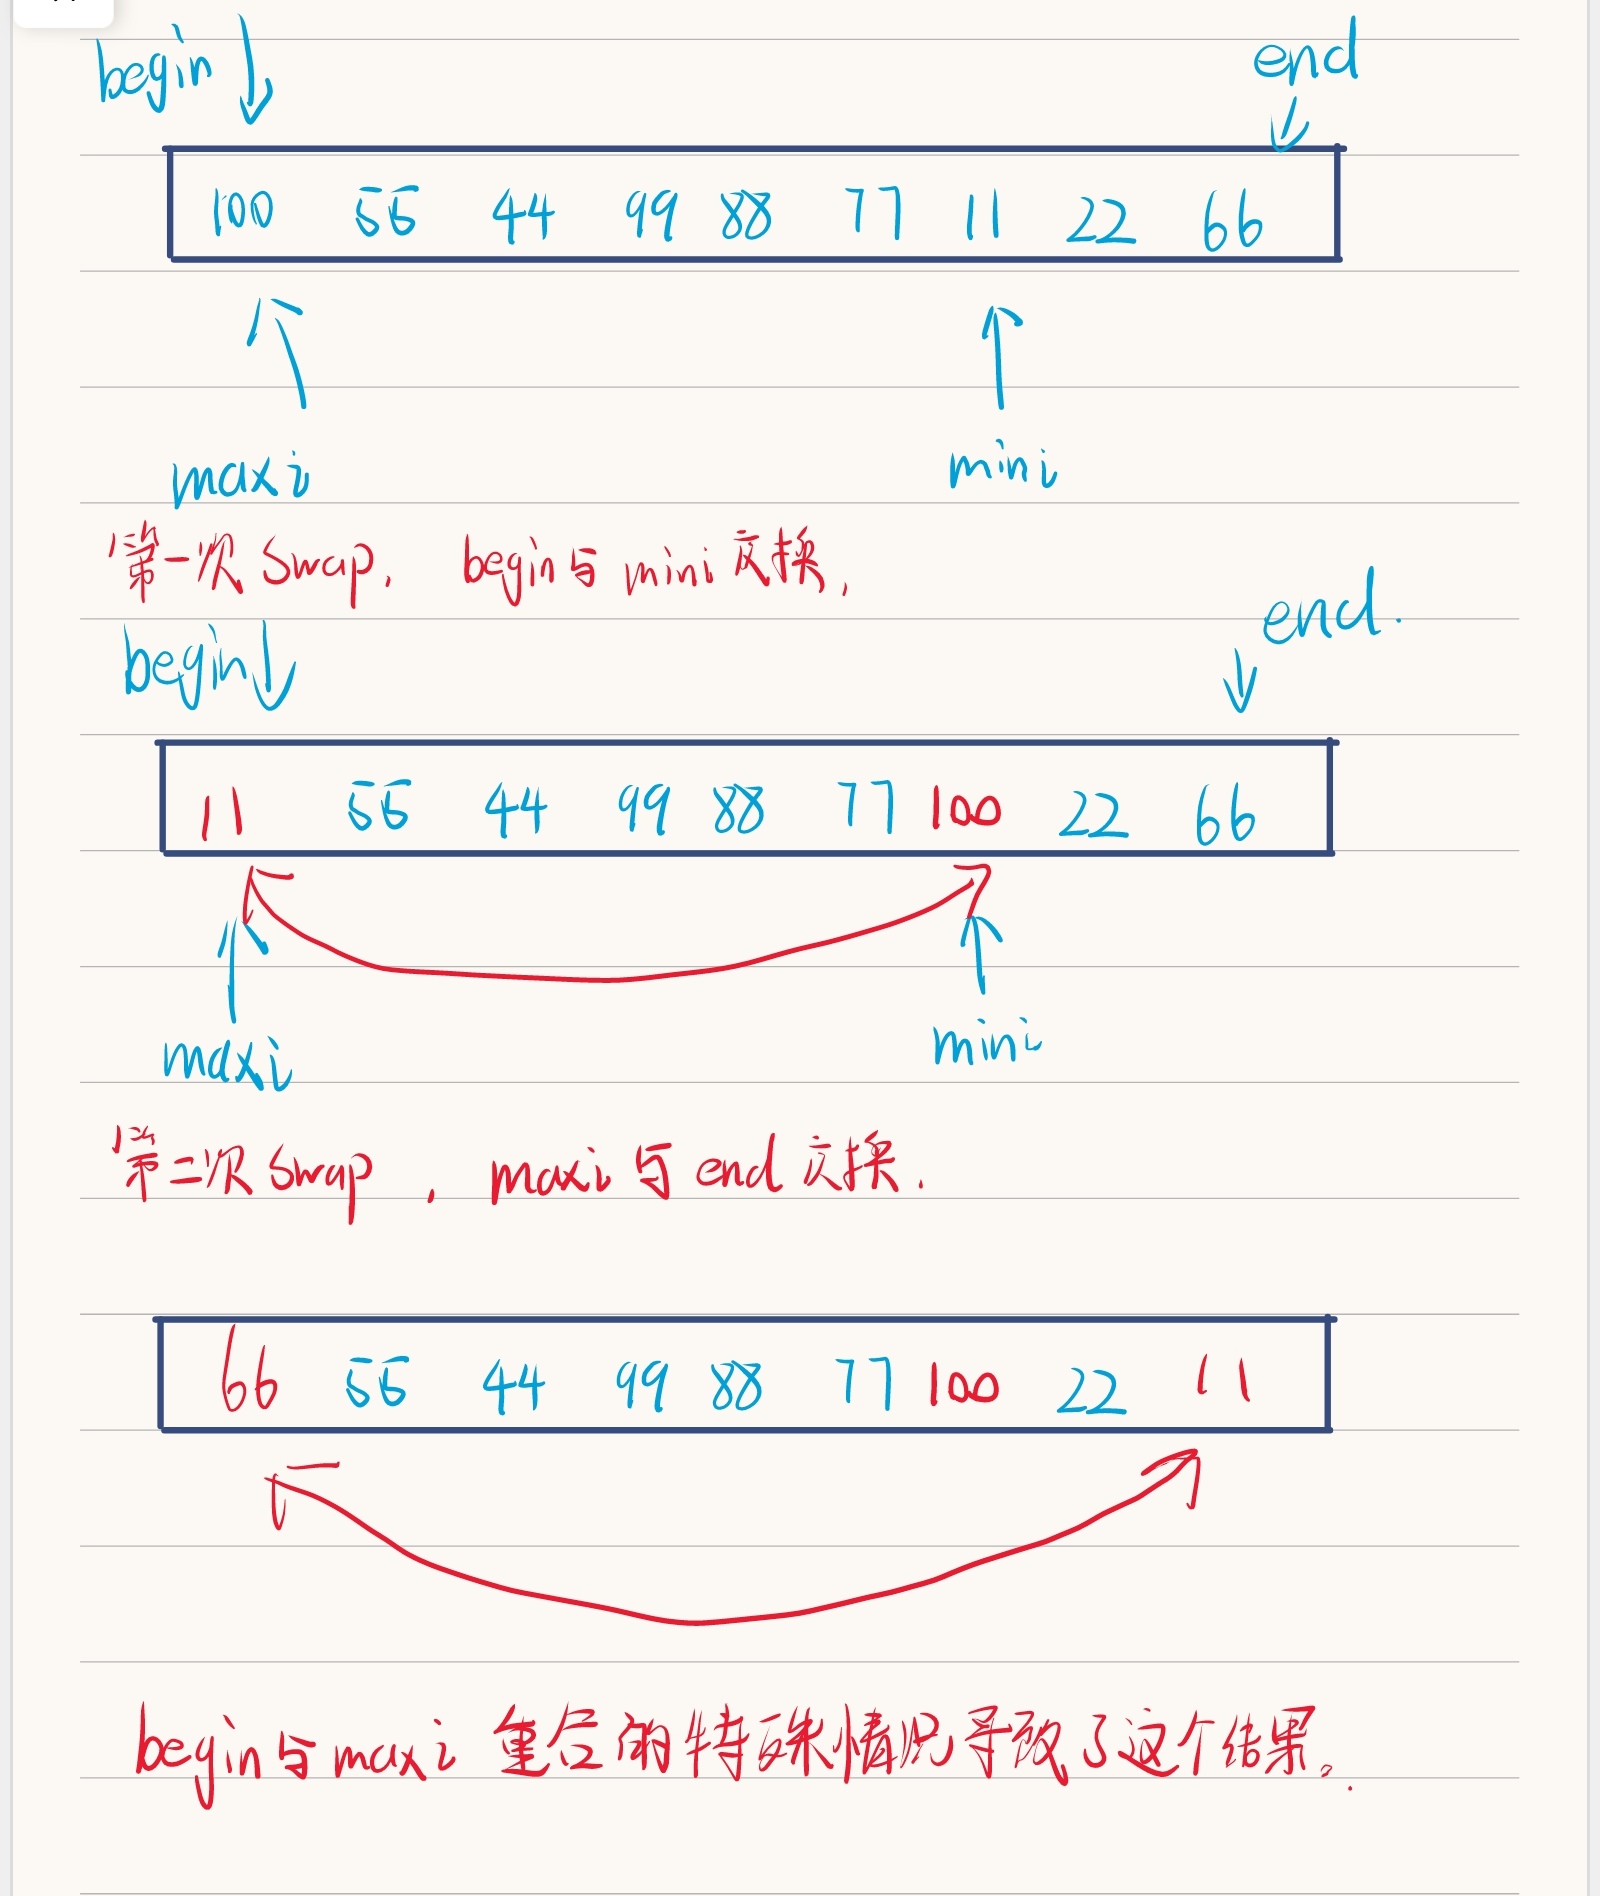 begin end
100 55 44 99 88 77 11 22 66
maxi mini
第一次 Swap, begin与mini交换,
begin end.
11 55 44 99 88 77 100 22 66
maxi mini
第二次 Swap, maxi与end交换.
66 55 44 99 88 77 100 22 11
begin与maxi重合的特殊情况导致了这个结果。